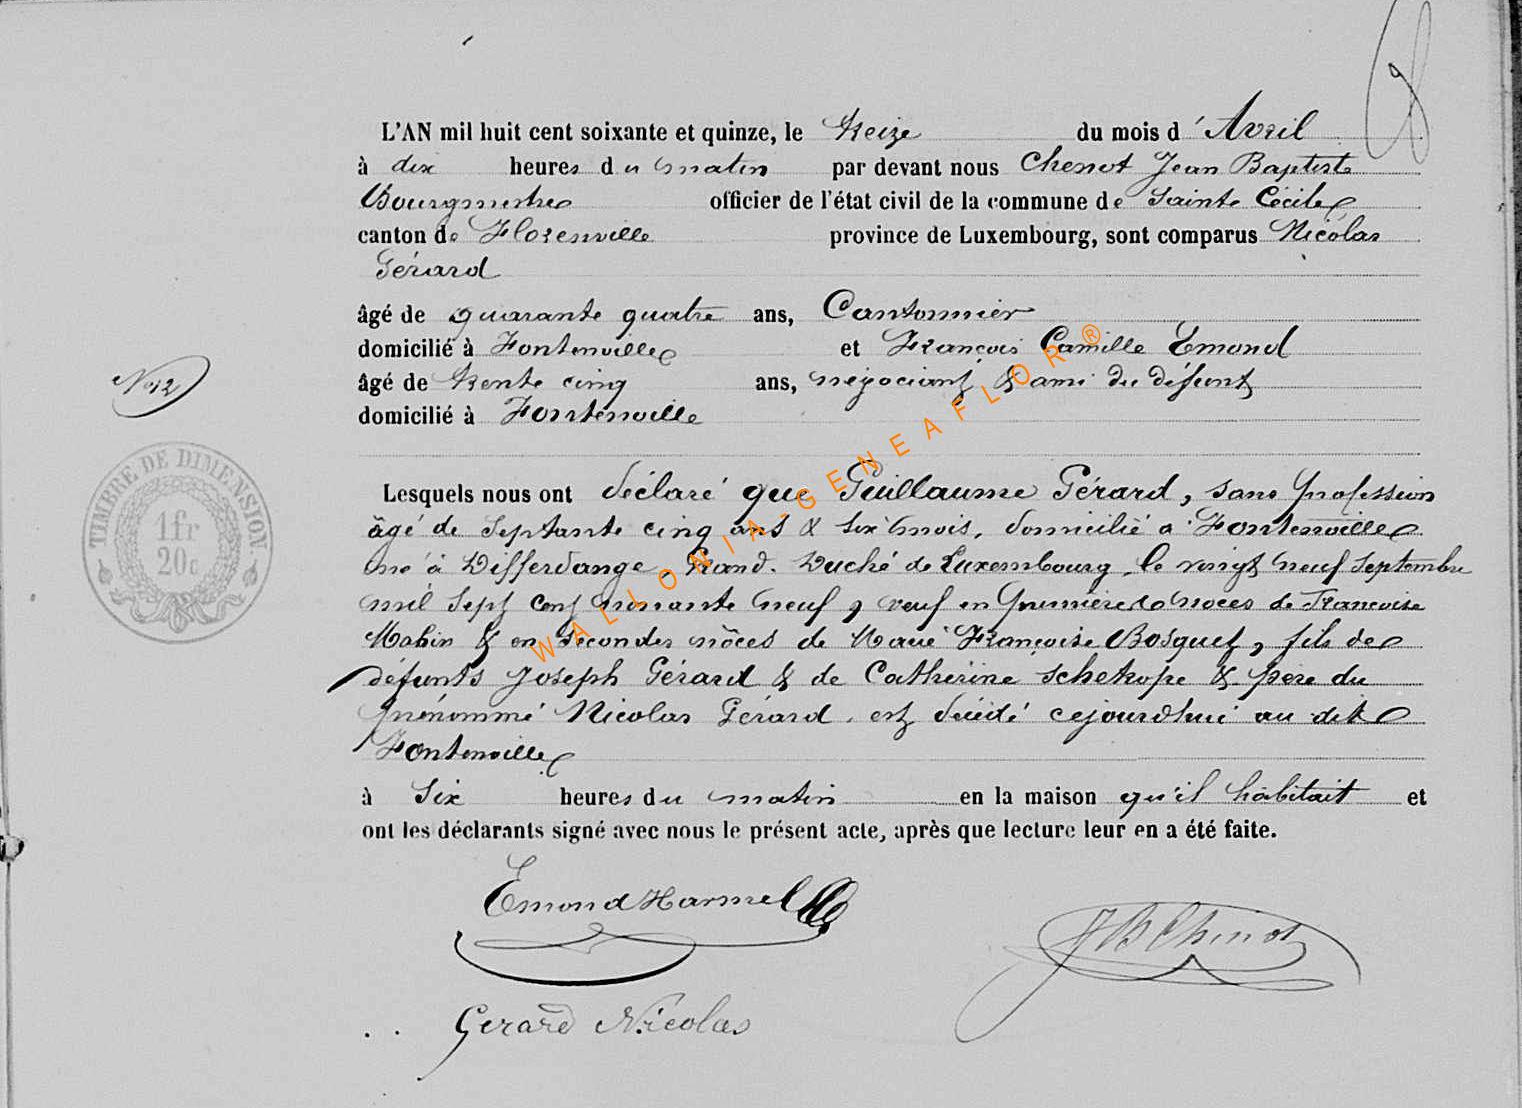 L'AN mil huit cent soixante et quinze, le treize du mois d'Avril
à dix heures du matin par devant nous Chenot Jean Baptiste
Bourgmestre officier de l'état civil de la commune de Sainte Cécile
canton de Florenville province de Luxembourg, sont comparus Nicolas
Gérard
âgé de quarante quatre ans, Cantonnier
domicilié à Fontenoille et François Camille Emond
âgé de trente cinq ans, négociant & ami du défunt
domicilié à Fontenoille
No 12
TIMBRE DE DIMENSION.
1fr
20c
Lesquels nous ont déclaré que Guillaume Gérard, sans profession
âgé de septante cinq ans & six mois, domicilié à Fontenoille
né à Differdange, Grand-Duché de Luxembourg, le vingt neuf septembre
mil sept cent nonante neuf, veuf en premières noces de Françoise
Mahin & en secondes nôces de Marie Françoise Bosquet, fils de
défunts Joseph Gérard & de Catherine & père du
prénommé Nicolas Gérard, est décédé cejourd'hui au dit
Fontenoille
à six heures du matin en la maison qu'il habitait et
ont les déclarants signé avec nous le présent acte, après que lecture leur en a été faite.
Emond Harmel
JB Chenot
Gerard Nicolas
WALLONIA-GENEAFLOR®